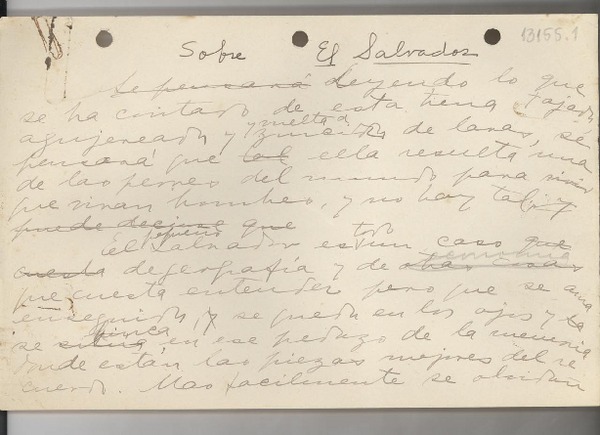 Sobre El Salvador
13155.1
Se pensará Leyendo lo que
se ha contado de esta tierra tajada
agujereada y vuelta a zurcida de lavas, se
pensará que tal ella resulta una
de las peores del mundo para
que vivan hombres, y no hay tal y
puede decirse que
El pequeño Salvador es todo un caso que
cuesta de geografía y de otras cosas
que cuesta entender pero que se ama
enseguida, y se queda en los ojos y
se hinca en ese pedazo de la memoria
donde están las piezas mejores del re
cuerdo. Mas facilmente se olvidan